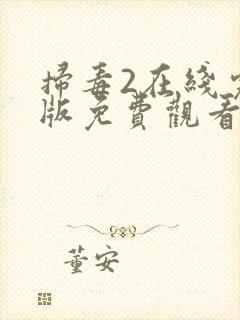 掃毒2在綫
版免費觀看
董安